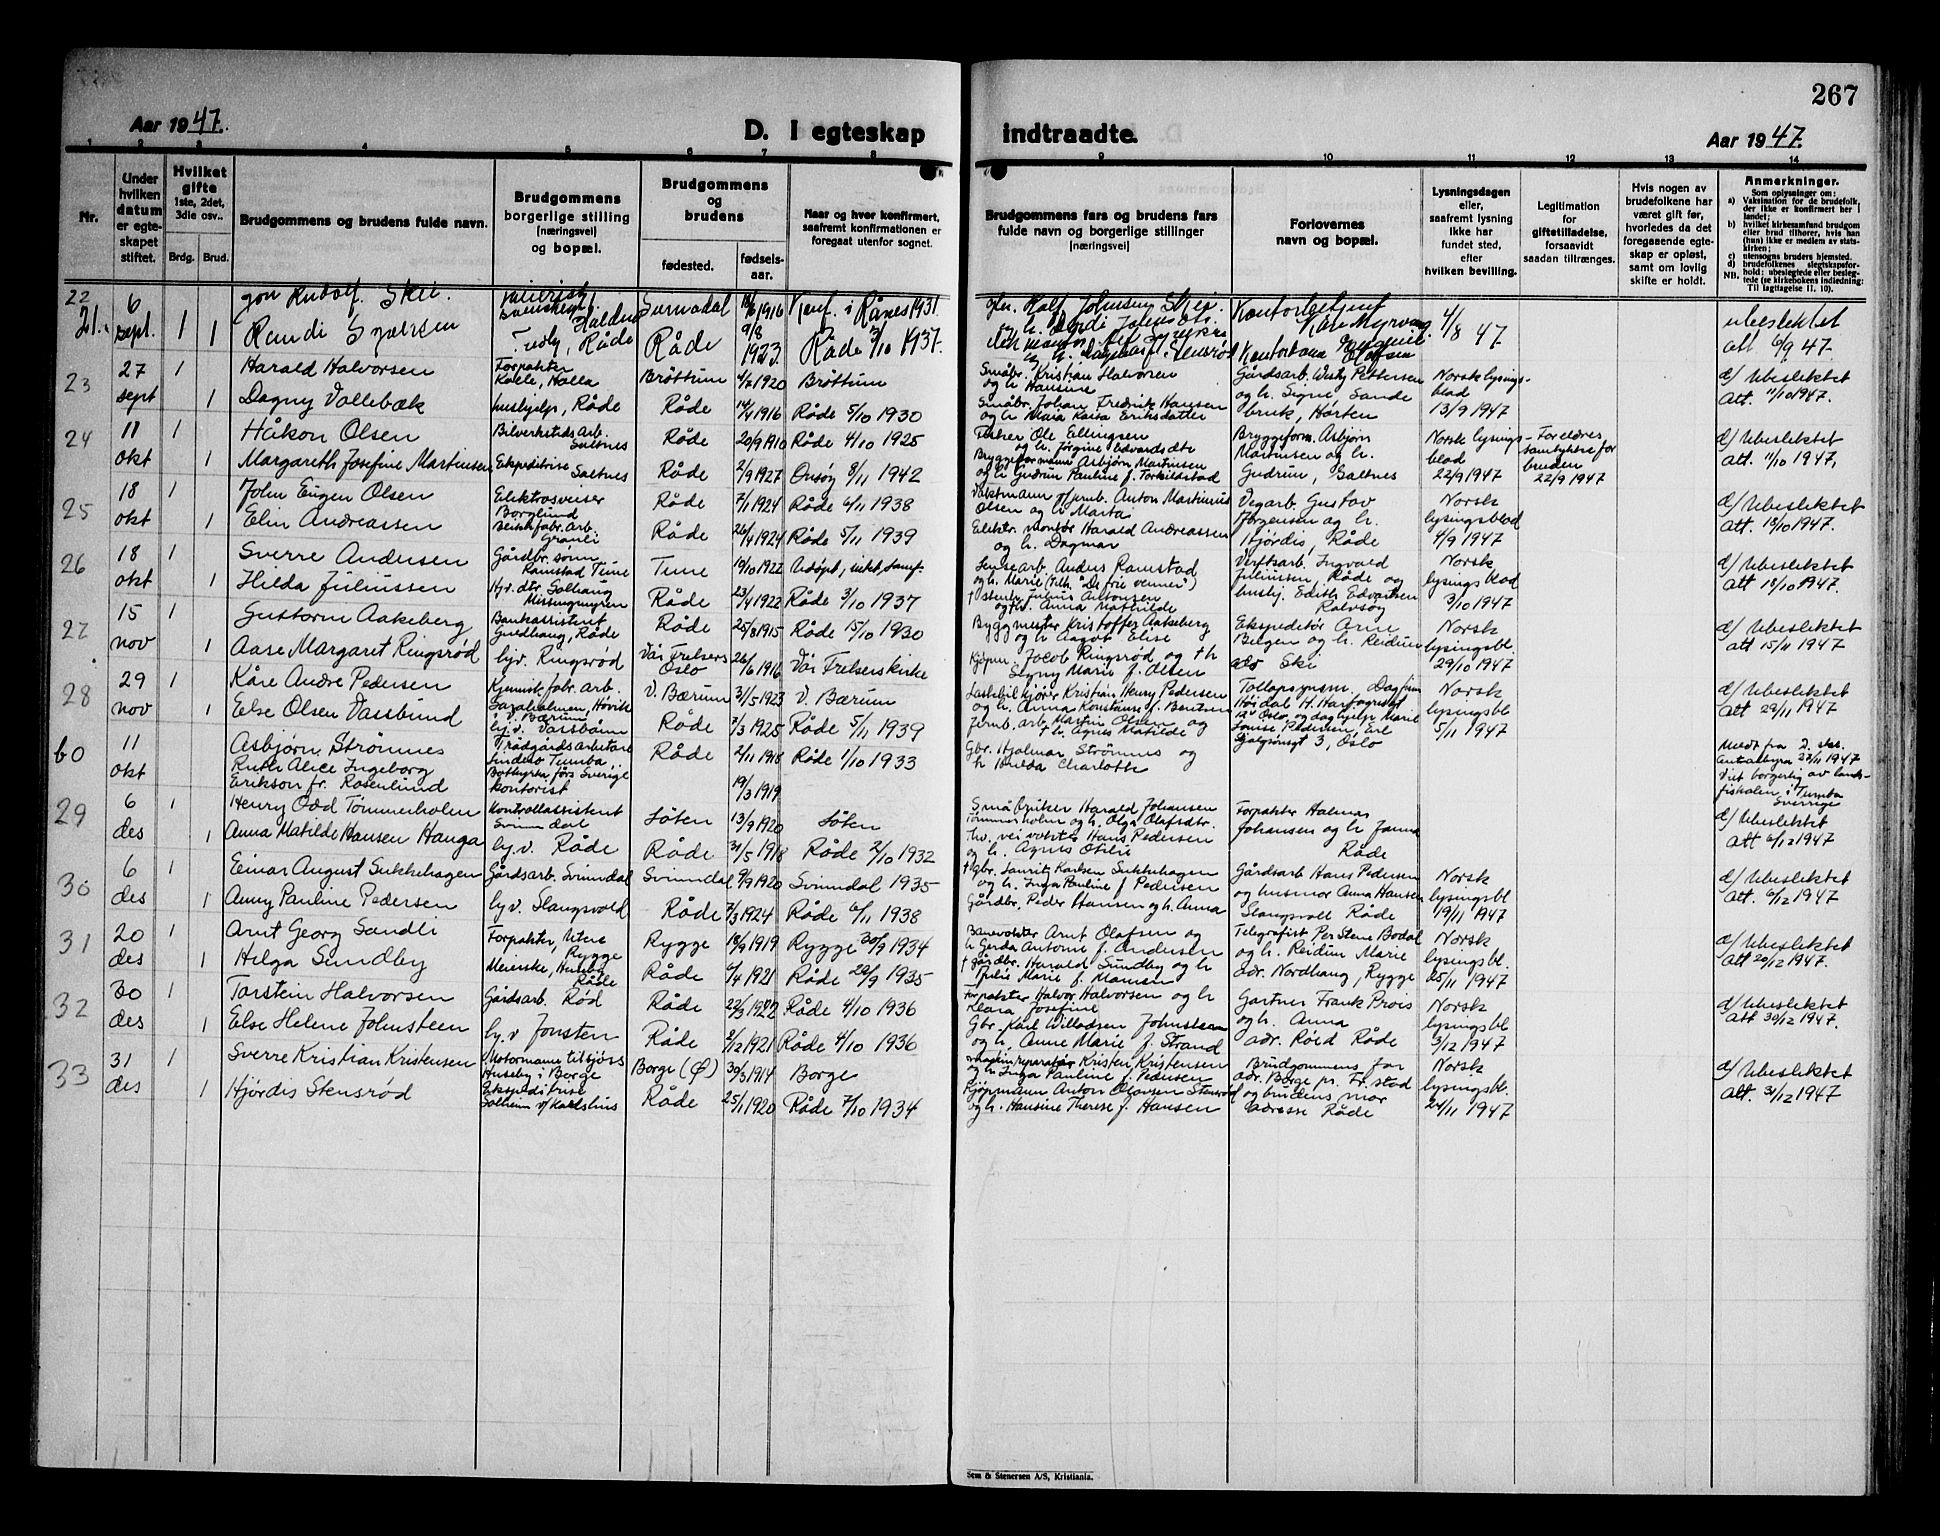 267
Aar 1947.
D. I egteskap
indtraadte.
Aar 1947.
1 2 3 4 5 6 7 8 9 10 11 12 13 14
Nr.
Under hvilken datum er egteskapet stiftet.
Hvilket gifte 1ste, 2det, 3die osv..
Brdg. Brud.
Brudgommens og brudens fulde navn.
Brudgommens borgerlige stilling (næringsvei) og bopæl.
Brudgommens og brudens
fødested.
fødselsaar.
Naar og hvor konfirmert, saafremt konfirmationen er foregaat utenfor sognet.
Brudgommens fars og brudens fars fulde navn og borgerlige stillinger (næringsvei)
Forlovernes navn og bopæl.
Lysningsdagen eller, saafremt lysning ikke har fundet sted, efter hvilken bevilling.
Legitimation for giftetilladelse, forsaavidt saadan tiltrænges.
Hvis nogen av brudefolkene har været gift før, hvorledes da det foregaaende egteskap er opløst, samt om lovlig skifte er holdt.
Anmerkninger.
Som oplysninger om:
a) Vaksination for de brudefolk, der ikke er konfirmert her i landet;
b) hvilket kirkesamfund brudgom eller brud tilhører, hvis han (hun) ikke er medlem av statskirken;
c) utensogns bruders hjemsted.
d) brudefolkenes slegtskapsforhold: ubeslegtede eller beslegtede (se kirkebokens indledning: Til Iagttagelse II. 10).
NB.
22 6 Jon Rudolf Skei. Surnadal 1916 Konf. i Rånes 1931
21. sept. 1 1 Randi Råde Råde 9/8 1923 Råde 3/10 1937. 4/8 47 ubeslektet att 6/9 47.
23 27 1 Harald Halvorsen Forpakter Brøttum 4/2 1920 Brøttum Småbr. Kristian Halvorsen og h. Hansine Gårdsarb. Pettersen Norsk lysings- d/ Ubeslektet
sept 1 Dagny Vallebæk hushjelp, Råde Råde 14/4 1916 Råde 5/10 1930 Småbr. Johan Fredrik Hansen og h. Maria Kaisa Eriksdatter og h. Signe, Sande bruk, Horten blad 13/9 1947 Att. 11/10 1947.
24 11 1 Håkon Olsen Bilverkstedsarb. Saltnes Råde 20/9 1910 Råde 4/10 1925 Fisker Ole Ellingsen og h. Jørgine Edvardsdtr Bryggeform. Asbjørn Norsk lysings- Foreldres d/ Ubeslektet
okt 1 Margareth Josefine Martinsen Ekspeditrise Saltnes Råde 2/9 1927 Onsøy 8/11 1942 Bryggeformann Asbjørn Martinsen og h. Gudrun Pauline f. Torkildstad Martinsen og h. Gudrun, Saltnes blad 22/9 1947 samtykke for bruden 22/9 1947 att. 11/10 1947,
25 18 1 John Eugen Olsen Elektrosveiser Borglund Råde 7/1 1924 Råde 6/11 1938 Vaktmann Anton Martinius Olsen og h. Marta Vegarb. Gustav Norsk d/ Ubeslektet
okt 1 Elin Andreassen Råde 26/4 1924 Råde 5/11 1939 Elektr. montør Harald Andreassen og h. Dagmar Jørgensen og h. Hjørdis, Råde lysingsblad 4/9 1947 Att. 18/10 1947.
26 18 1 Sverre Andersen Gårdbr. sønn Ramstad Tune Tune 19/10 1922 Anders Ramstad og h. Marie (Tilh. "De frie venner") Verftsarb. Ingvald Norsk d/ Ubeslektet
okt 1 Hilda Juliussen Hjv. dtr. Solhaug Missingmyren Råde 23/4 1922 Råde 3/10 1937 Julius Antonsen og h. Anna Mathilde Juliussen, Råde og Edith Edvartsen Rolvsøy lysingsblad 3/10 1947 att 18/10 1947.
27 15 1 Gustorm Aakeberg Bankassistent Råde Råde 25/8 1915 Råde 15/10 1930 Byggmester Kristoffer Aakeberg og h. Aagot Elise Ekspeditør Arne Norsk d/ Ubeslektet
nov 1 Aase Margaret Ringsrød hjv. Ringsrød Vår Frelsers Oslo 26/6 1916 Vår Frelsers kirke Kjøpm. Jacob Ringsrød og † h Signy Marie f. Olsen Bergen og h. Reidun adr Ski lysingsbl. 29/10 1947 att 15/11 1947
28 29 1 Kåre Andre Pedersen Kjemisk fabr. arb. Høvik V. Bærum V. Bærum 31/5 1923 V. Bærum Lastebilkjører Kristian Henry Pedersen og h. Anna Konstanse f. Berntsen Norsk d/ Ubeslektet
nov 1 Else Olsen Vassbund hj. v. Råde 7/3 1925 Råde 5/11 1939 Jernb. arb. Martin Olsen og h. Agnes Matilde Marie Louise Pedersen 3, Oslo lysingsbl. 5/11 1947 att 29/11 1947
60 11 Asbjørn Strømnes Trädgårdsarbetare Råde 2/11 1918 Råde 1/10 1933 Gbr. Hjalmar Strømnes og h Charlotte Meldt fra 2. 22/11 1947
okt Ruth Alice Ingeborg Erikson fr. Rosenlund Tumba, Sverige kontorist 19/3 1919 Viet borgerlig av landsfiskalen i Tumba Sverige
29 6 1 Henry Odd Tømmerholen Kontrollassistent Svinndal Løten 13/9 1920 Løten Småbruker Harald Johansen Tømmerholen og h. Olga Olafsdtr. Forpakter Halmar d/ Ubeslektet
des 1 Anna Matilde Hansen Hauga hj.v. Råde Råde 31/5 1918 Råde 2/10 1932 vei vokter Hans Pedersen og h. Agnes Otilie Johansen og h Janna Råde att 6/12 1947.
30 6 1 Einar August Sukkehagen Gårdsarb. Svinndal Svinndal 9/9 1920 Svinndal 1935 †gbr. Laurits Karlsen Sukkehagen og h. Inga Pauline f Pedersen Gårdsarb Hans Pedersen Norsk d/ Ubeslektet
des 1 Anny Pauline Pedersen hj v. Slangsvold Råde 7/3 1924 Råde 6/11 1938 Gårdbr. Peder Hansen og h. Anna og husmor Anna Hansen Slangsvoll Råde lysingsbl. 19/11 1947 att. 6/12 1947
31 20 1 Arnt Georg Sandli Forpakter, Rygge Rygge 18/9 1919 Rygge 30/9 1934 Banevokter Arnt Olafsen og h Gerda Antonie f. Andersen Telegrafist Per Stene Bodal Norsk d/ Ubeslektet
des 1 Helga Sundby Meierske, Husby Råde Råde 6/4 1921 Råde 22/9 1935 † gårdbr. Harald Sundby og h Julie Marie f. Monsen og h. Reidun Marie adr. Nordhaug, Rygge lysingsbl. 25/11 1947 att 20/12 1947.
32 30 1 Torstein Halvorsen Gårdsarb. Rød Råde 22/3 1922 Råde 4/10 1936 Forpakter Halvor Halvorsen og h Klara Josefine Gartner Frank Prois Norsk d/ Ubeslektet
des 1 Else Helene Johnsteen hj. v Jonsten Råde 9/12 1921 Råde 4/10 1936 Gbr. Karl Willadsen Johnsteen og h. Anne Marie f. Strand og h. Anna adr. Røed Råde lysingsbl. 3/12 1947 Att 30/12 1947.
33 31 1 Sverre Kristian Kristensen Motormann tilsjøss Huseby i Borge Borge (Ø) 30/3 1914 Borge Maskinreparatør Kristen Kristensen og h Inga Pauline f. Pedersen Brudgommens far Norsk d/ Ubeslektet
des 1 Hjørdis Stensrød Ekspeditrise Solheim v/ Karlshus Råde 25/11 1920 Råde 7/10 1934 Kjøpmann Anton Olavsen Stensrød og h. Hansine Therese f. Hansen adr. Borge pr. Fr. stad og brudens mor adresse Råde lysingsbl. 24/11 1947 att. 31/12 1947
Sem & Stenersen A/S, Kristiania.